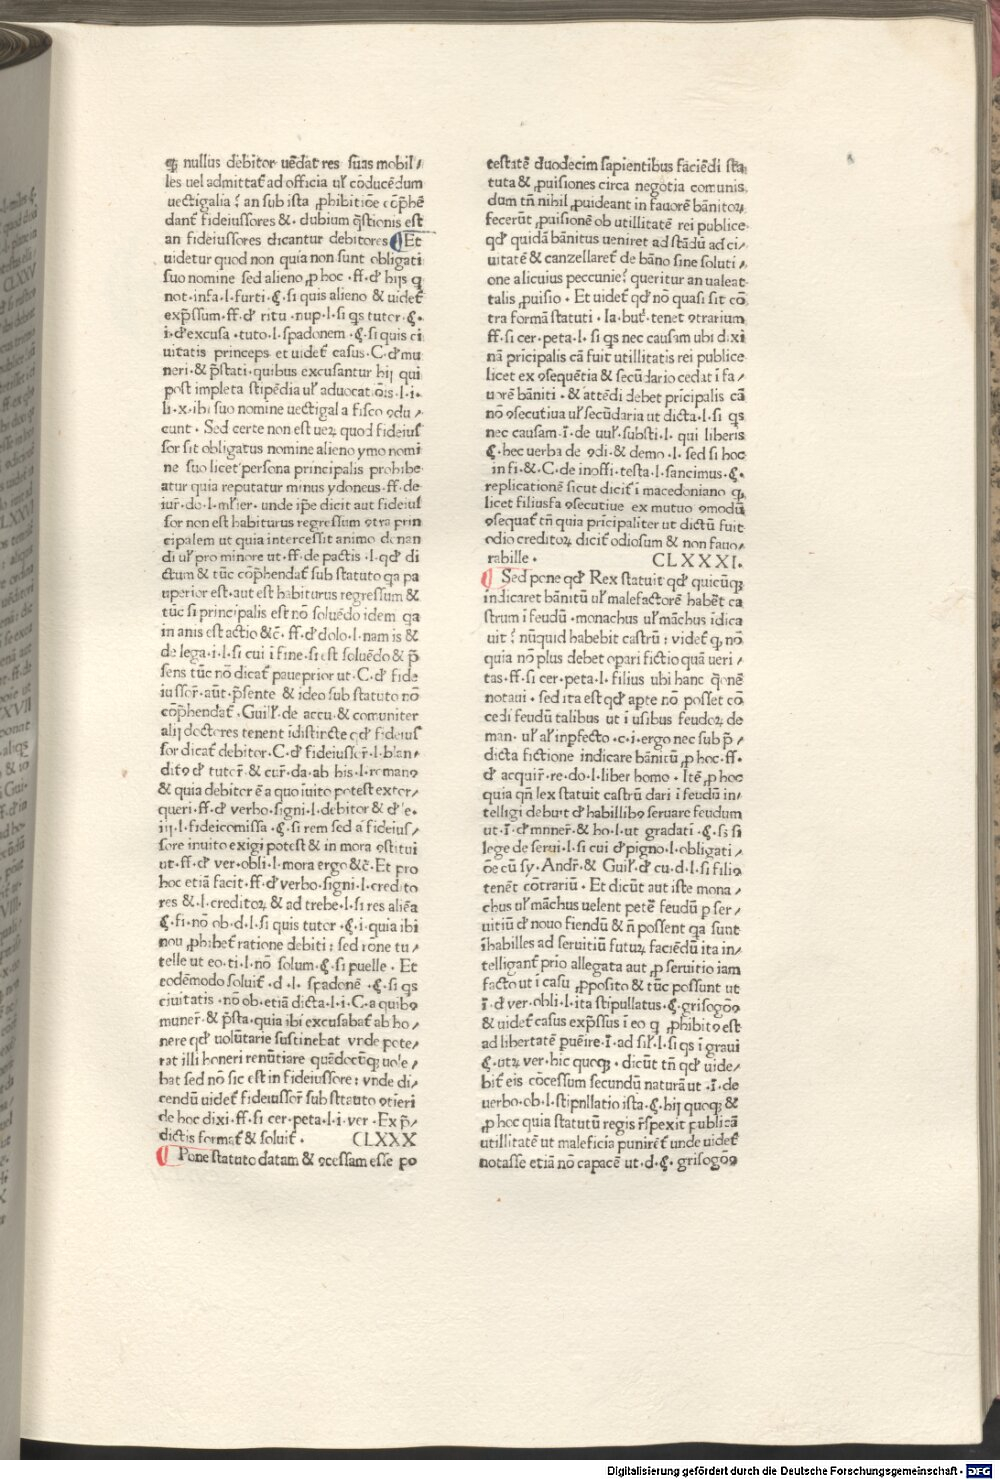 qꝫ nullus debitor uēdat res suas mobil/
les uel admittat̉ ad officia ul̉ cōducēdum
uectigalia ? an sub ista ꝓhibitiōe cōp̄hē
dant̉ fideiussores & · dubium q̄stionis est
an fideiussores dicantur debitores ¶ Et
uidetur quod non quia non sunt obligati
suo nomine sed alieno ꝓ hoc · ff · d̕ hijs q
not · infa · l · furti · § · si quis alieno & uidet̉
exp̄ssum · ff · d̕ ritu · nup · l · si qs tutor · § ·
i · d̕ excusa · tuto · l · spadonem · § · si quis ci
uitatis princeps et uidet̉ casus · C · d̕ mu
neri · & p̄stati · quibus excusantur hij qui
post impleta stipēdia ul̉ aduocat ōis · l · i ·
li · x · ibi suo nomine uectigal a fisco ꝯdu /
cunt · Sed certe non est ueꝝ quod fideius
sor sit obligatus nomine alieno ymo nomi
ne suo licet persona principalis prohibe
atur quia reputatur minus ydoneus · ff · de
iur̄ · do · l · ml̉ier · unde ip̄e dicit aut fideius
sor non est habiturus regressum ꝯtra prin
cipalem ut quia intercessit animo donan
di ul̉ pro minore ut · ff · de pactis · l · qd̕ di
ctum & tūc cōp̄hendat̉ sub statuto qa pa
uperior est · aut est habiturus regressum &
tūc si principalis est nō soluēdo idem qa
in anis est actio &c̄ · ff · d̕ dolo · l · nam is &
de lega · i · l · si cui i fine · si est soluēdo & p̄
sens tūc nō dicat̉ paueprior ut · C · d̕ fide
iussor̄ · aut̄ · p̄sente & ideo sub statuto nō
cōp̄hendat̉ · Guil̉ · de accu · & comuniter
alij doctores tenent idistīcte qd̕ fideius
sor dicat̉ debitor · C · d̕ fideiussor̄ · l · blan /
ditꝯ d̕ tutor̄ · & cur̄ · da · ab his · l · romanꝯ
& quia debitor ē a quo iuito potest extor /
queri · ff · d̕ verbo · signi · l · debitor & d̕ le ·
iij · l · fideicomissa · § · si rem sed a fideius /
sore inuito exigi potest & in mora ꝯstitui
ut · ff · d̕ ver · obli · l · mora ergo &c̄ · Et pro
hoc etiā facit · ff · d̕ verbo · signi · l · credito
res & · l · creditoꝝ & ad trebe · l · si res aliēa
§ · fi · nō ob · d · l · si quis tutor · § · i · quia ibi
nou ꝓhibet̉ ratione debiti : sed rone tu /
telle ut eo · ti · l · nō solum · § · si puelle · Et
eodēmodo soluit̉ · d · l · spadonē · § · si qs
ciuitatis · nō ob · etiā dicta · l · i · C · a quibꝯ
muner̄ · & p̄sta · quia ibi excusabat̉ ab ho /
nere qd̕ uolūtarie sustinebat vnde pote /
rat illi honeri renūtiare quādocūqꝫ uole /
bat sed nō sic est in fideiussore : vnde di /
cendū uidet̉ fideiussor̄ sub sttauto ꝯtieri
de hoc dixi · ff · si cer · peta · l · i · ver · Ex p̄ /
dictis format̉ & soluit̉ · CLXXX
¶ Pone statuto datam & ꝯcessam esse po
testatē duodecim sapientibus faciēdi sta
tuta & ꝓuisiones circa negotia comunis
dum tn̄ nihil ꝓuideant in fauorē bānitoꝝ
fecerūt ꝓuisionē ob utillitatē rei publice
qd̕ quidā bānitus ueniret ad stādū ad ci /
uitatē & canzellaret̉ de bāno sine soluti /
one alicuius peccunie ? queritur an ualeat
talis ꝓuisio · Et uidet̉ qd̕ nō quasi sit cō
tra formā statuti · Ia · but̉ · tenet ꝯtrarium
ff · si cer · peta · l · si qs nec causam ubi dixi
nā pricipalis cā fuit utillitatis rei publice
licet ex ꝯsequētia & secūdario cedat i fa /
uorē bāniti · & attēdi debet pricipalis cā
nō ꝯsecutiua ul̉ secūdaria ut dicta · l · si qs
nec causam · ī · de uul̉ · substi · l · qui liberis
§ · hec uerba de ꝯdi · & demo · l · sed si hoc
in fi · & · C · de inoffi · testa · l · sancimus · § ·
replicationē sicut dicit̉ i macedoniano qꝫ
licet filiusfa ꝯsecutiue ex mutuo ꝯmodū
ꝯsequat̉ tn̄ quia pricipaliter ut dictū fuit
odio creditoꝝ dicit̉ odiosum & non fauo /
rabille · CLXXXI ·
¶ Sed pone qd̕ Rex statuit qd̕ quicūqꝫ
indicaret bānitū ul̉ malefactorē habēt ca
strum i feudū · monachus ul̉ mācħus idica
uit ? nūquid habebit castrū : videt̉ qꝫ nō
quia nō plus debet opari fictio quā ueri /
tas · ff · si cer · peta · l · filius ubi hanc q̄onē
notaui · sed ita est qd̕ apte nō posset cō
cedi feudū talibus ut i usibus feudoꝝ de
man · ul̉ al̉ inpfecto · c · i · ergo nec sub p̄ /
dicta fictione indicare bānitū ꝓ hoc · ff ·
d̕ acquir̄ · re · do · l · liber homo · Itē ꝓ hoc
quia qn̄ lex statuit castrū dari i feudū in /
telligi debuit d̕ habillibꝯ seruare feudum
ut · ī · d̕ mnner̄ · & ho · l · ut gradati · § · sꝫ si
lege de serui · l · si cui d̕ pigno · l · obligati /
ōe cū sy · Andr̄ · & Guil̉ · d̕ cu · d · l · si filiꝯ
tenēt cōtrariū · Et dicūt aut iste mona /
chus ul̉ mācħus uelent petē feudū p ser /
uitiū d̕ nouo fiendū & n̄ possent qa sunt
īhabilles ad seruitiū futuꝝ faciēdū ita in /
telligant̉ prio allegata aut ꝓ seruitio iam
facto ut i casu ꝓposito & tūc possunt ut
ī · d̕ ver · obli · l · ita stipullatus · § · grisogōꝯ
& uidet̉ casus exp̄ssus i eo q ꝓhibitꝯ est
ad libertatē puēire · ī · ad sil̉ · l · si qs i graui
§ · utꝝ ver · hic quoqꝫ · dicūt tn̄ qd̕ uide /
bit̉ eis cōcessum secundū naturā ut · ī · de
uerbo · ob · l · stipnllatio ista · § · hij quoqꝫ &
ꝓ hoc quia statutū regis r̄spexit publicā
utillitatē ut maleficia puniret̉ unde uidet̉
notasse etiā nō capacē ut · d · § · grisogōꝯ
Digitalisierung gefördert durch die Deutsche Forschungsgemeinschaft - DFG